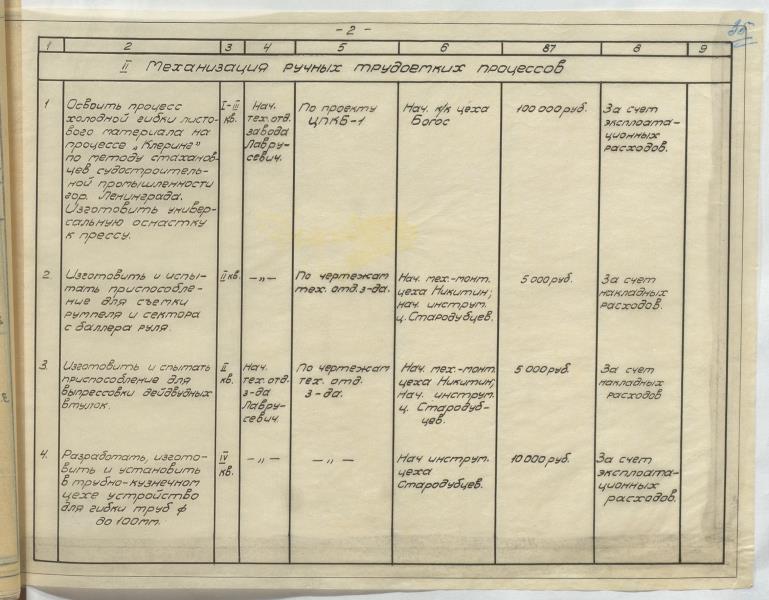 - 2 -
1 2 3 4 5 6 87 8 9
II Механизация ручных трудоемких процессов
1 Освоить процесс
холодной гибки листо-
вого материала на
процессе „Клеринг"
по методу стаханов-
цев судостроитель-
ной промышленности
гор. Ленинграда.
Изготовить универ-
сальную оснастку
к прессу.
I-III
кв.
Нач.
тех. отд.
завода
Лавру-
севич.
По проекту
ЦПКБ-1
Нач. к/к цеха
Богос
100 000 руб.
За счет
эксплоата-
ционных
расходов.
2. Изготовить и испы-
тать приспособле-
ние для съемки
румпеля и сектора
с баллера руля.
II кв.
—„—
По чертежам
тех. отд. з-да.
Нач. мех.-монт.
цеха Никитин;
нач. инструм.
ц. Стародубцев.
5 000 руб.
За счет
накладных
расходов.
3. Изготовить и спытать
приспособление для
выпрессовки дейдвудных
втулок.
II
кв.
Нач.
тех. отд.
з-да
Лавру-
севич.
По чертежам
тех. отд.
з-да.
Нач. мех.-монт.
цеха Никитин;
Нач. инструм.
ц. Стародуб-
цев.
5 000 руб.
За счет
накладных
расходов
4. Разработать, изгото-
вить и установить
в трубно-кузнечном
цехе устройство
для гибки труб ф
до 100 mm.
IV
кв.
—„—
—„—
Нач инструм.
цеха
Стародубцев.
10 000 руб.
За счет
эксплоата-
ционных
расходов.